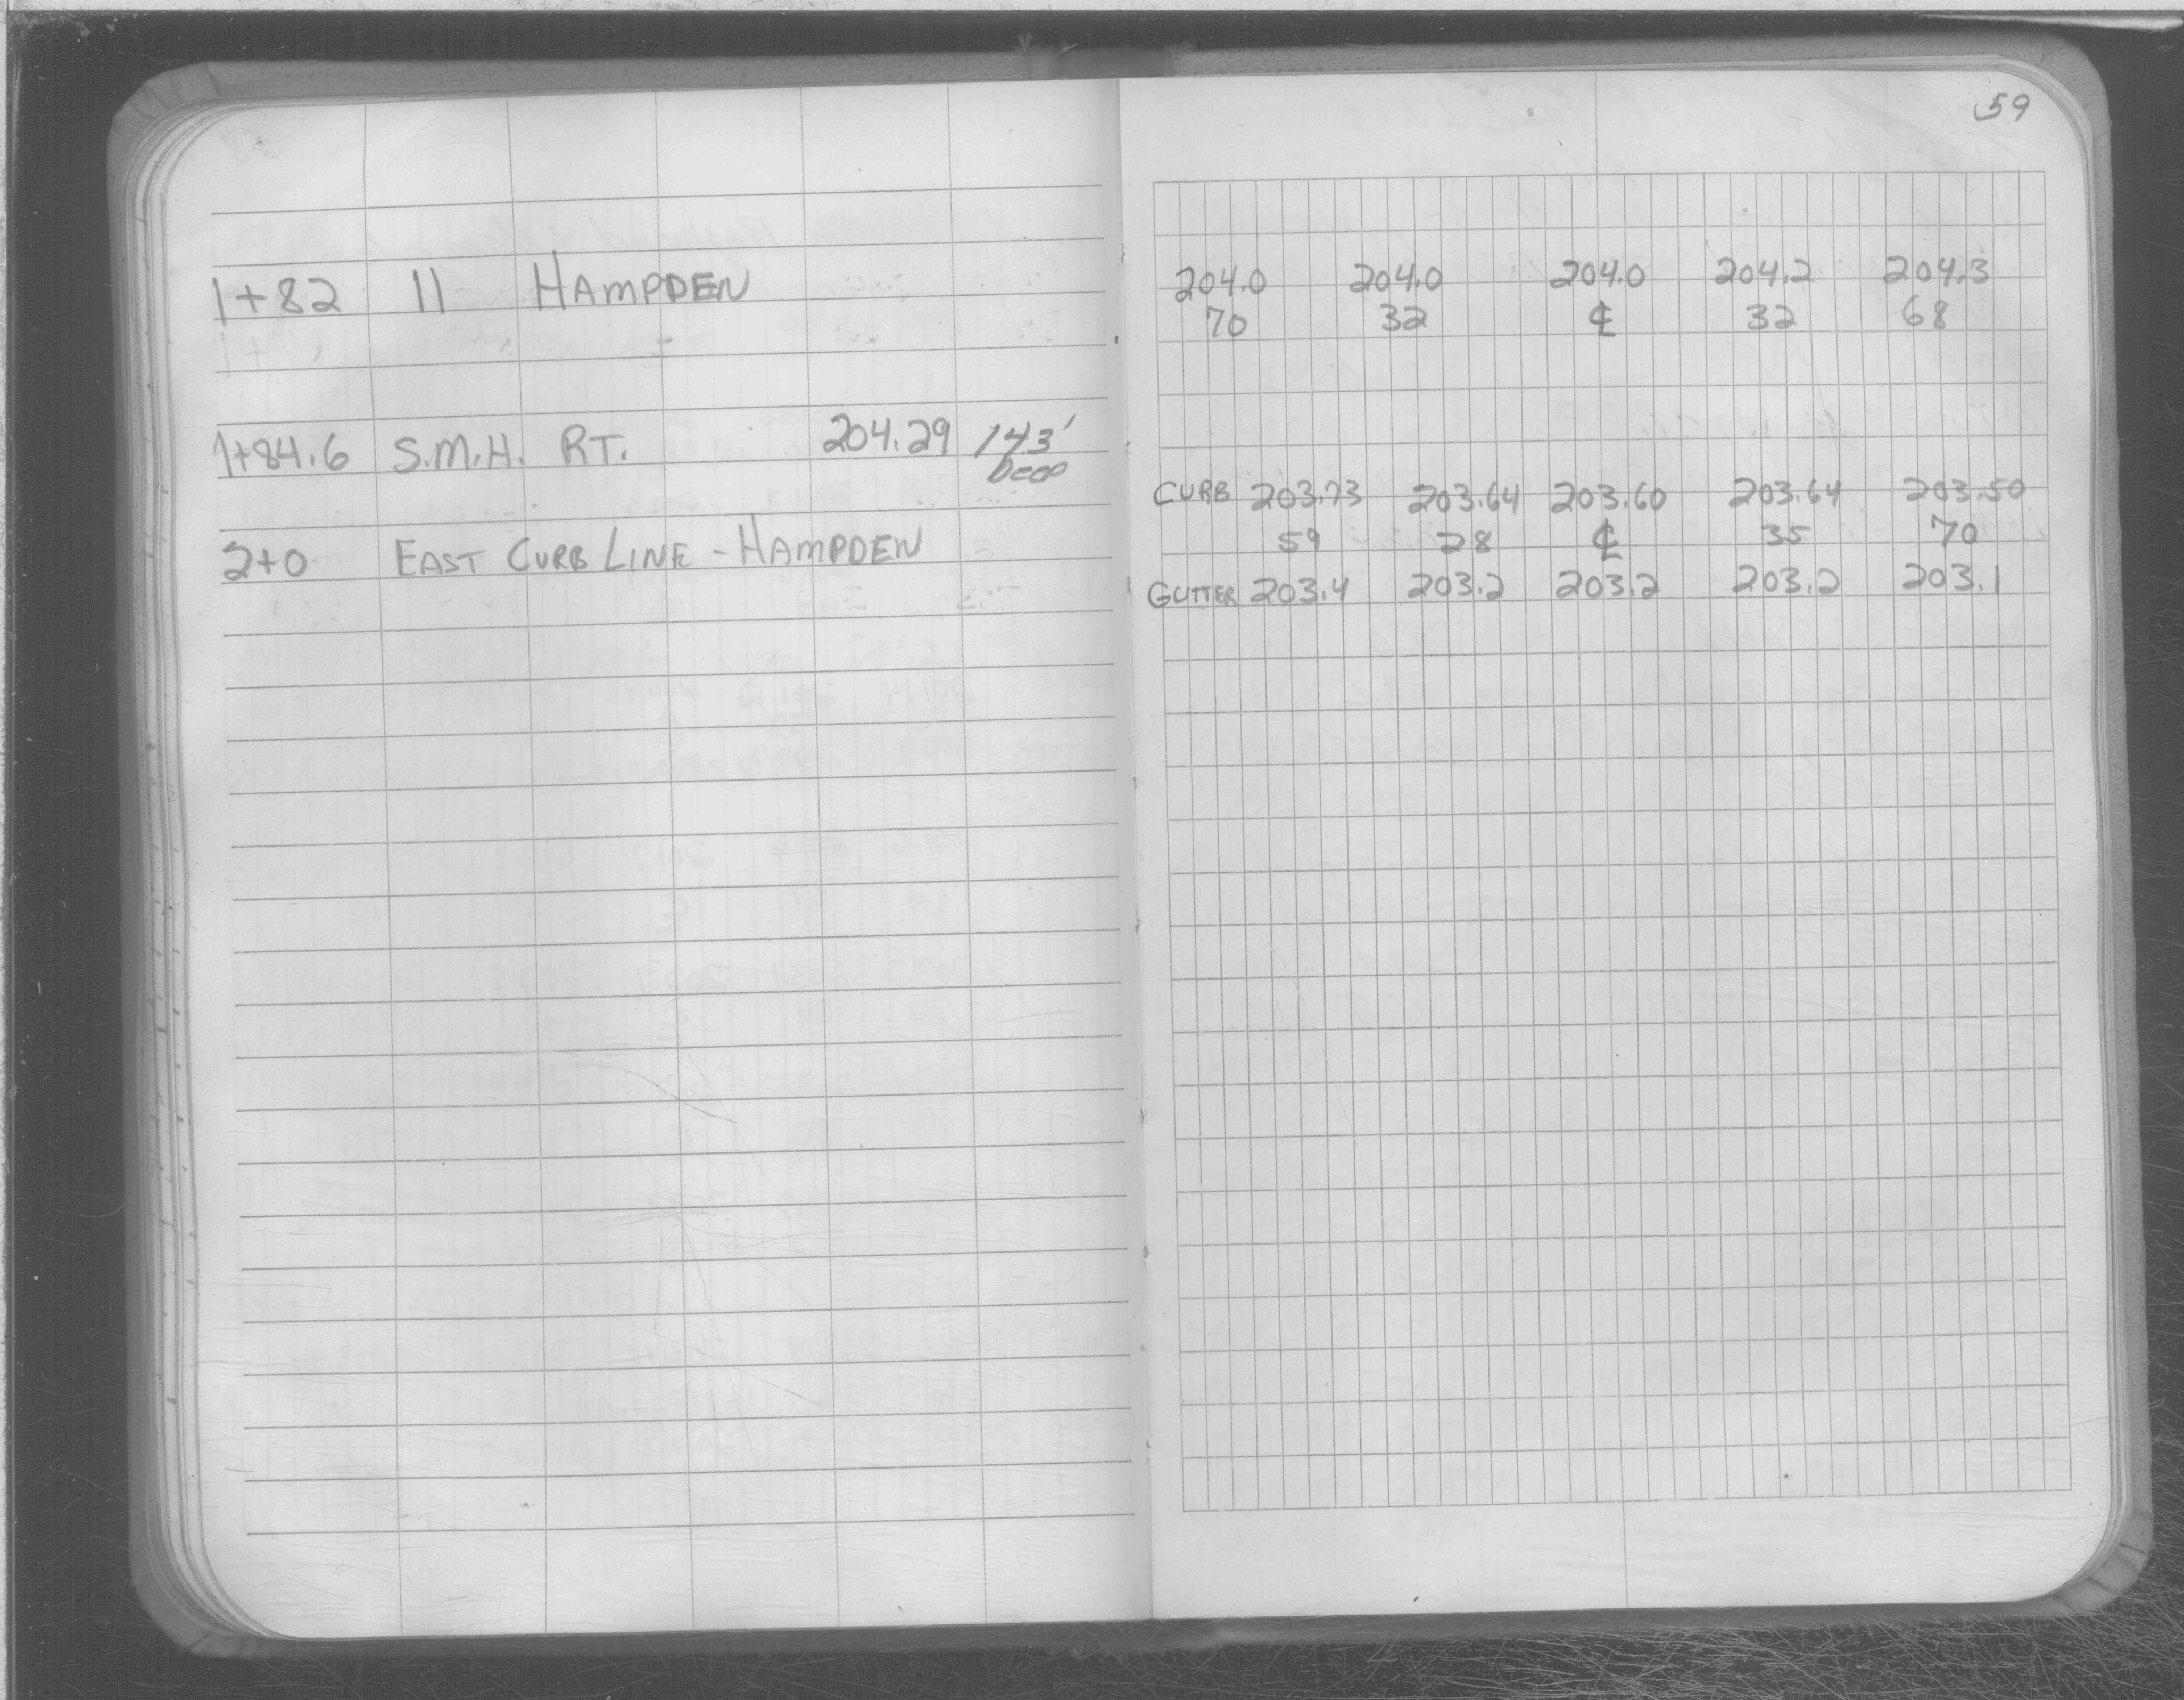 59
1+82 11 HAMPDEN
204.0 204.0 204.0 204.2 204.3
70 32 ℄ 32 68
1+84.6 S.M.H. RT. 204.29 14.3'
DEEP
CURB 203.73 203.64 203.60 203.64 203.50
2+0 EAST CURB LINE - HAMPDEN
59 28 ℄ 35 70
GUTTER 203.4 203.2 203.2 203.2 203.1